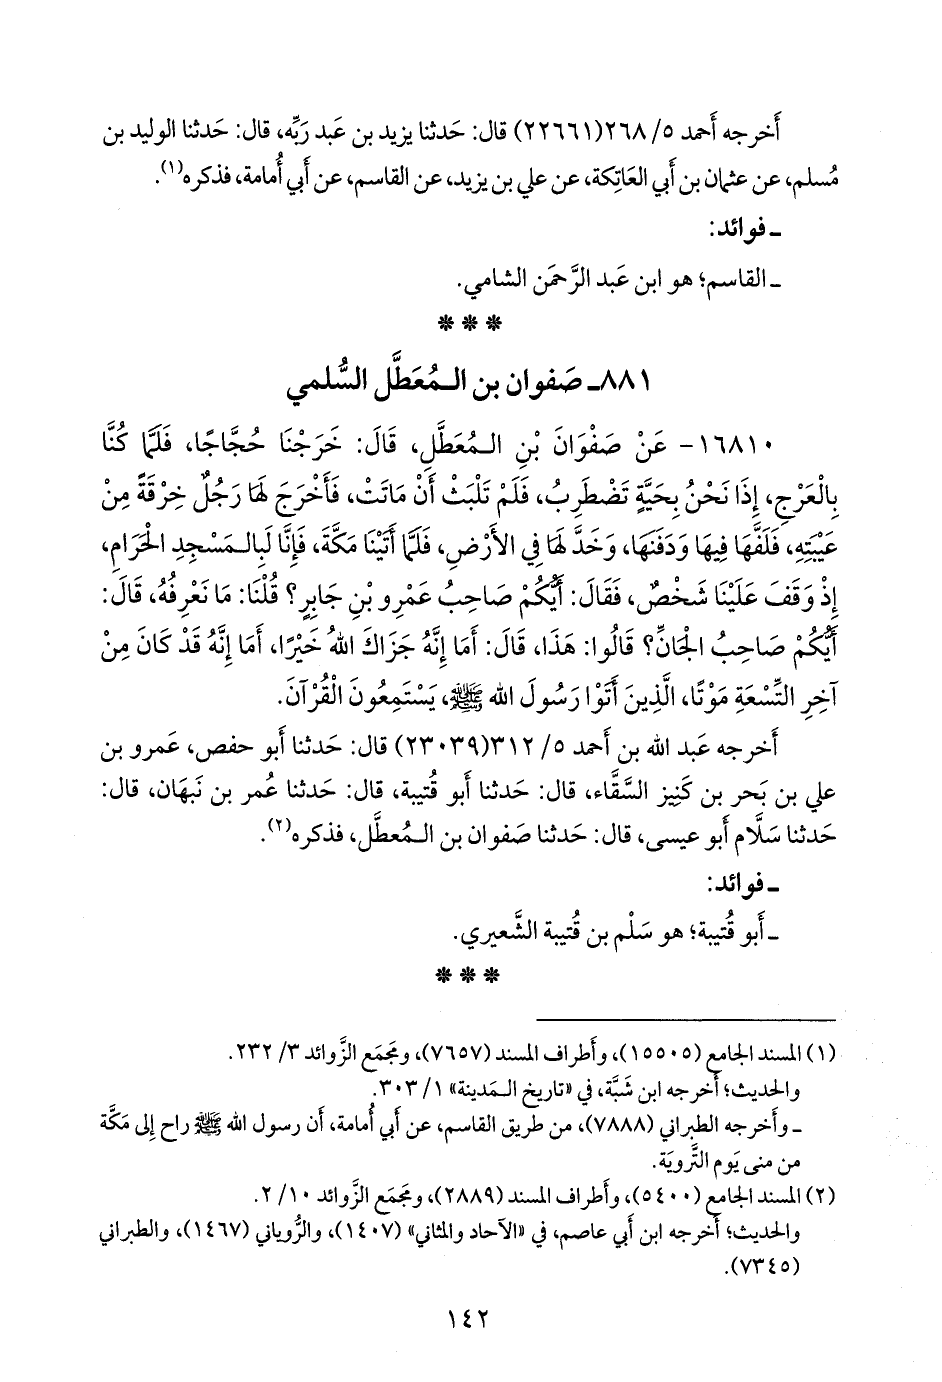 أَخرجه أَحمد ٥/ ٢٦٨(٢٢٦٦١) قال: حَدثنا يزيد بن عَبد رَبِّه، قال: حَدثنا الوليد بن
مُسلم، عن عثمان بن أَبي العَاتِكة، عن علي بن يزيد، عن القاسم، عن أَبي أُمامة، فذكره(١).
ـ فوائد:
ـ القاسم؛ هو ابن عَبد الرَّحمَن الشامي.
* * *
٨٨١ـ صَفوان بن الـمُعَطَّل السُّلمي
١٦٨١٠- عَنْ صَفْوَانَ بْنِ الـمُعَطَّلِ، قَالَ: خَرَجْنَا حُجَّاجًا، فَلَمَّا كُنَّا
بِالْعَرْجِ، إِذَا نَحْنُ بِحَيَّةٍ تَضْطَرِبُ، فَلَمْ تَلْبَثْ أَنْ مَاتَتْ، فَأَخْرَجَ لَهَا رَجُلٌ خِرْقَةً مِنْ
عَيْبَتِهِ، فَلَفَّهَا فِيهَا وَدَفَنَهَا، وَخَدَّ لَهَا فِي الأَرْضِ، فَلَمَّا أَتَيْنَا مَكَّةَ، فَإِنَّا لَبِالـمَسْجِدِ الْحَرَامِ،
إِذْ وَقَفَ عَلَيْنَا شَخْصٌ، فَقَالَ: أَيُّكُمْ صَاحِبُ عَمْرِو بْنِ جَابِرٍ؟ قُلْنَا: مَا نَعْرِفُهُ، قَالَ:
أَيُّكُمْ صَاحِبُ الْجَانِّ؟ قَالُوا: هَذَا، قَالَ: أَمَا إِنَّهُ جَزَاكَ اللهُ خَيْرًا، أَمَا إِنَّهُ قَدْ كَانَ مِنْ
آخِرِ التِّسْعَةِ مَوْتًا، الَّذِينَ أَتَوْا رَسُولَ الله ﷺ، يَسْتَمِعُونَ الْقُرْآنَ.
أَخرجه عَبد الله بن أَحمد ٥/ ٣١٢(٢٣٠٣٩) قال: حَدثنا أَبو حفص، عَمرو بن
علي بن بَحر بن كَنِيز السَّقاء، قال: حَدثنا أَبو قُتيبة، قال: حَدثنا عُمر بن نَبهان، قال:
حَدثنا سَلَّام أَبو عيسى، قال: حَدثنا صَفوان بن الـمُعطَّل، فذكره(٢).
ـ فوائد:
ـ أَبو قُتيبة؛ هو سَلْم بن قُتيبة الشَّعيري.
* * *
(١) المسند الجامع (١٥٥٠٥)، وأَطراف المسند (٧٦٥٧)، ومَجمَع الزَّوائد ٣/ ٢٣٢.
والحديث؛ أَخرجه ابن شَبَّة، في «تاريخ الـمَدينة» ١/ ٣٠٣.
ـ وأَخرجه الطبراني (٧٨٨٨)، من طريق القاسم، عن أَبي أُمامة، أَن رسول الله ﷺ راح إِلى مَكَّة
من منى يَوم التَّرويَة.
(٢) المسند الجامع (٥٤٠٠)، وأَطراف المسند (٢٨٨٩)، ومَجمَع الزَّوائد ١٠/ ٢.
والحديث؛ أَخرجه ابن أَبي عاصم، في «الآحاد والمثاني» (١٤٠٧)، والرُّوياني (١٤٦٧)، والطبراني
(٧٣٤٥).
١٤٢